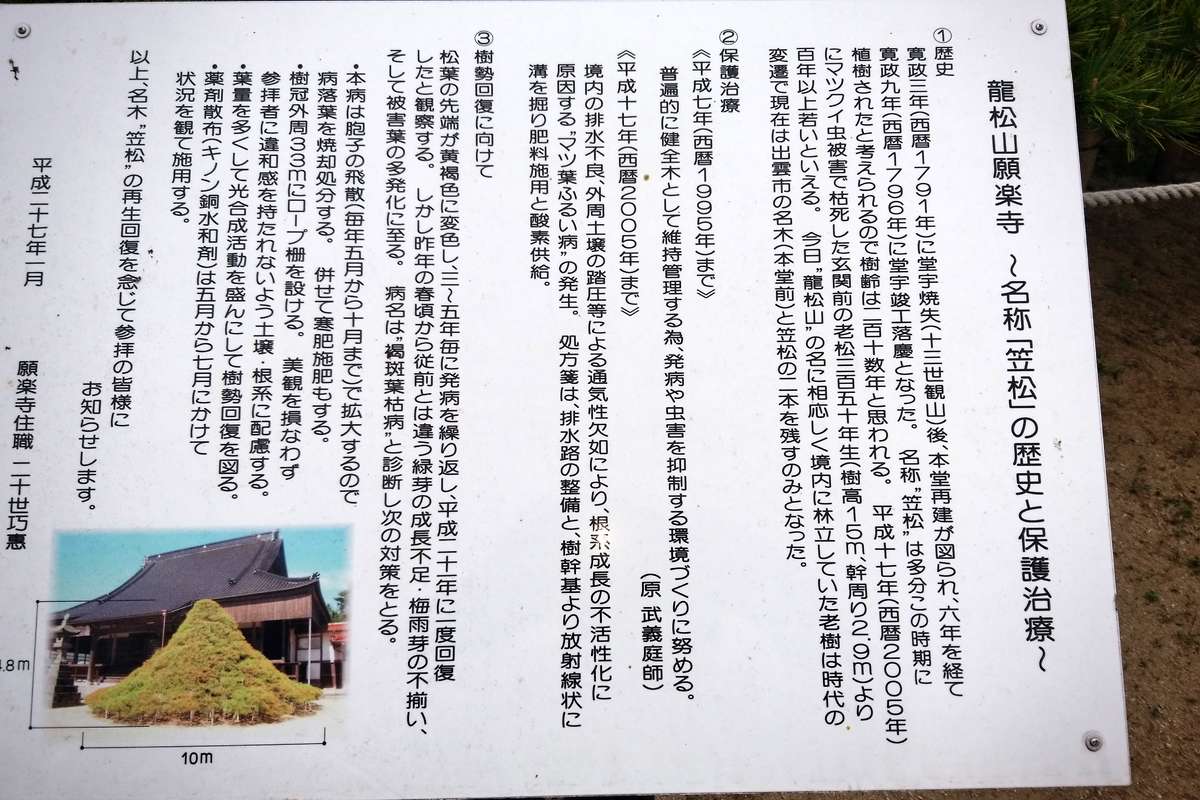 龍松山願楽寺 〜名称「笠松」の歴史と保護治療〜
①歴史
寛政三年(西暦1791年)に堂宇焼失(十三世観山)後、本堂再建が図られ、六年を経て
寛政九年(西暦1796年)に堂宇竣工落慶となった。 名称"笠松"は多分この時期に
植樹されたと考えられるので樹齢は二百十数年と思われる。 平成十七年(西暦2005年)
にマツクイ虫被害で枯死した玄関前の老松三百五十年生(樹高15m、幹周り2.9m)より
百年以上若いといえる。 今日"龍松山"の名に相応しく境内に林立していた老樹は時代の
変遷で現在は出雲市の名木(本堂前)と笠松の二本を残すのみとなった。
②保護治療
《平成七年(西暦1995年)まで》
普遍的に健全木として維持管理する為、発病や虫害を抑制する環境づくりに努める。
(原 武義庭師)
《平成十七年(西暦2005年)まで》
境内の排水不良、外周土壌の踏圧等による通気性欠如により、根系成長の不活性化に
原因する"マツ葉ふるい病"の発生。 処方箋は、排水路の整備と、樹幹基より放射線状に
溝を掘り肥料施用と酸素供給。
③樹勢回復に向けて
松葉の先端が黄褐色に変色し、三〜五年毎に発病を繰り返し、平成二十二年に一度回復
したと観察する。 しかし昨年の春頃から従前とは違う緑芽の成長不足・梅雨芽の不揃い、
そして被害葉の多発化に至る。 病名は"褐斑葉枯病"と診断し次の対策をとる。
・本病は胞子の飛散(毎年五月から十月まで)で拡大するので
病落葉を焼却処分する。 併せて寒肥施肥もする。
・樹冠外周33mにロープ柵を設ける。 美観を損なわず
参拝者に違和感を持たれないよう土壌・根系に配慮する。
・葉量を多くして光合成活動を盛んにして樹勢回復を図る。
・薬剤散布(キノン銅水和剤)は五月から七月にかけて
状況を観て施用する。
以上、名木"笠松"の再生回復を念じて参拝の皆様に
お知らせします。
平成二十七年一月
願楽寺住職 二十世巧惠
.8m
10m